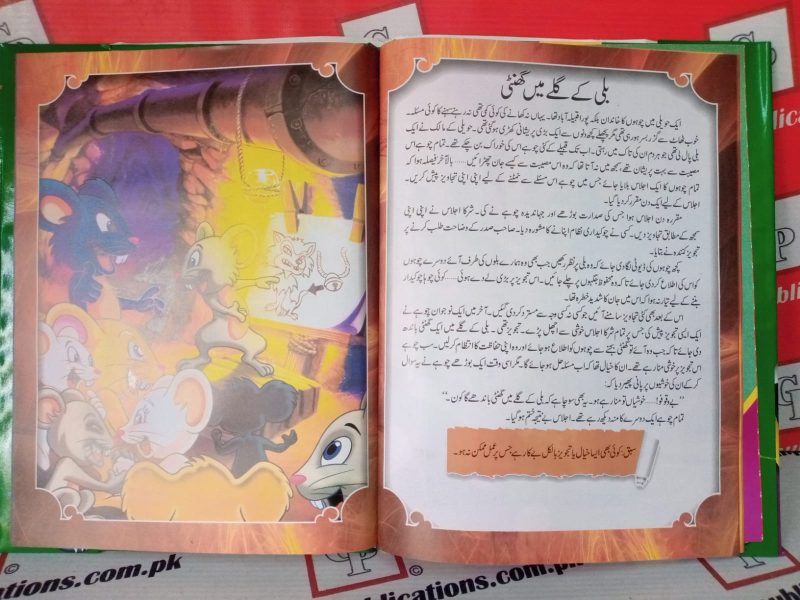 بلی کے گلے میں گھنٹی
ایک حویلی میں چوہوں کا خاندان بلکہ پورا قبیلہ آباد تھا۔ یہاں نہ کھانے کی کوئی کمی تھی نہ رہنے سہنے کا کوئی مسئلہ۔
خوب ٹھاٹ سے گزر بسر ہو رہی تھی مگر پچھلے کچھ دنوں سے ایک بڑی پریشانی کھڑی ہو گئی تھی۔ حویلی کے مالک نے ایک
بلی پال لی تھی جو ہر دم ان کی تاک میں رہتی۔ اب تک قبیلے کے کئی چوہے اس کی خوراک بن چکے تھے۔ تمام چوہے اس
مصیبت سے بہت پریشان تھے، سمجھ میں نہ آتا تھا کہ وہ اس مصیبت سے کیسے جان چھڑائیں...... بالآخر فیصلہ ہوا کہ
تمام چوہوں کا ایک اجلاس بلایا جائے جس میں چوہے اس مسئلے سے نمٹنے کے لیے اپنی اپنی تجاویز پیش کریں۔
اجلاس کے لیے ایک دن مقرر کر دیا گیا۔
مقررہ دن اجلاس ہوا جس کی صدارت بوڑھے اور جہاندیدہ چوہے نے کی۔ شرکا اجلاس نے اپنی اپنی
سمجھ کے مطابق تجاویز دیں۔ کسی نے چوکیداری نظام اپنانے کا مشورہ دیا۔ صاحب صدر کے وضاحت طلب کرنے پر
تجویز کنندہ نے بتایا۔
کچھ چوہوں کی ڈیوٹی لگا دی جائے کہ وہ بلی پر نظر رکھیں جب بھی وہ ہمارے بلوں کی طرف آئے دوسرے چوہوں
کو اس کی اطلاع کر دی جائے تاکہ وہ محفوظ جگہوں پر چلے جائیں۔ اس تجویز پر بڑی لے دے ہوئی...... کوئی چوہا چوکیدار
بننے کے لیے تیار نہ ہوا کہ اس میں جان کا شدید خطرہ تھا۔
اس کے بعد بھی کئی تجاویز سامنے آئیں جو کسی نہ کسی وجہ سے مسترد کر دی گئیں۔ آخر میں ایک نوجوان چوہے نے
ایک ایسی تجویز پیش کی جس پر تمام شرکا اجلاس خوشی سے اچھل پڑے۔ تجویز تھی۔ بلی کے گلے میں ایک گھنٹی باندھ
دی جائے تاکہ جب وہ آئے تو گھنٹی بجنے سے چوہوں کو اطلاع ہو جائے اور وہ اپنی حفاظت کا انتظام کر لیں۔ سب چوہے
اس تجویز پر خوشی منا رہے تھے۔ ان کا خیال تھا کہ اب مسئلہ حل ہو جائے گا۔ مگر اسی وقت ایک بوڑھے چوہے نے یہ سوال
کر کے ان کی خوشیوں پر پانی پھیر دیا کہ:
"بے وقوفو!...... خوشیاں تو منا رہے ہو۔ یہ بھی سوچا ہے کہ بلی کے گلے میں گھنٹی باندھے گا کون۔"
تمام چوہے ایک دوسرے کا منہ دیکھ رہے تھے۔ اجلاس بے نتیجہ ختم ہو گیا۔
سبق: کوئی بھی ایسا خیال یا تجویز بالکل بے کار ہے جس پر عمل ممکن نہ ہو۔
blications
ublication
©
cations.com.pk
©
publications.com.pk